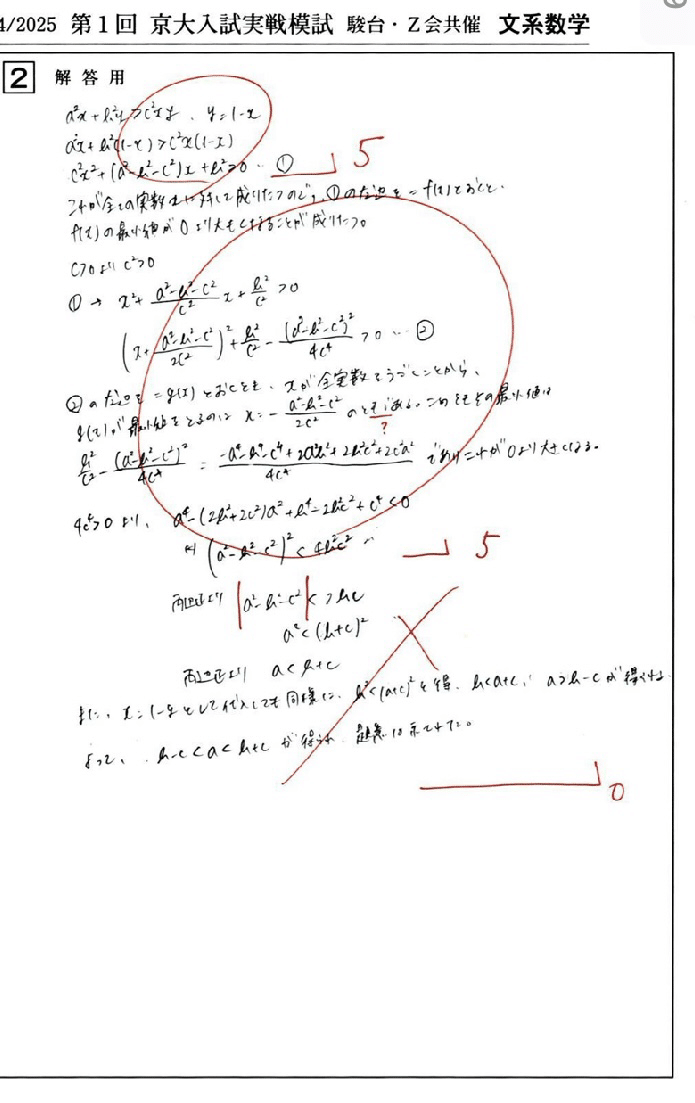 4/2025 第1回 京大入試実戦模試 駿台・Z会共催 文系数学
2 解答用
a²x + b²y > c²xy 、 y = 1-x
a²x + b²(1-x) > c²x(1-x)
c²x² + (a²-b²-c²)x + b² > 0 … ① 5
これが全ての実数xに対して成り立つので、①の左辺を = f(x)とおくと、
f(x)の最小値が0より大きくなることが成り立つ。
c>0より c²>0
① → x² + (a²-b²-c²)/c² x + b²/c² > 0
(x + (a²-b²-c²)/2c²)² + b²/c² - (a²-b²-c²)²/4c⁴ > 0 … ②
②の左辺を = g(x) とおくとき、xが全実数をうごくことから、
g(x)が最小値をとるのは x = - (a²-b²-c²)/2c² のときである。このときその最小値は
?
b²/c² - (a²-b²-c²)²/4c⁴ = (-a⁴-b⁴-c⁴+2a²b²+2b²c²+2c²a²)/4c⁴ であり これが0より大きくなる。
4c⁴>0 より、 a⁴-(2b²+2c²)a²+b⁴-2b²c²+c⁴<0
(a²-b²-c²)² < 4b²c²
5
両辺正より |a²-b²-c²| < 2bc
a² < (b+c)²
両辺正より a < b+c
また、x = 1-y として代入しても同様に、b² < (a+c)² を得、b<a+c, a>b-c が得られる
よって、b-c < a < b+c が得られ 題意は示された。
0